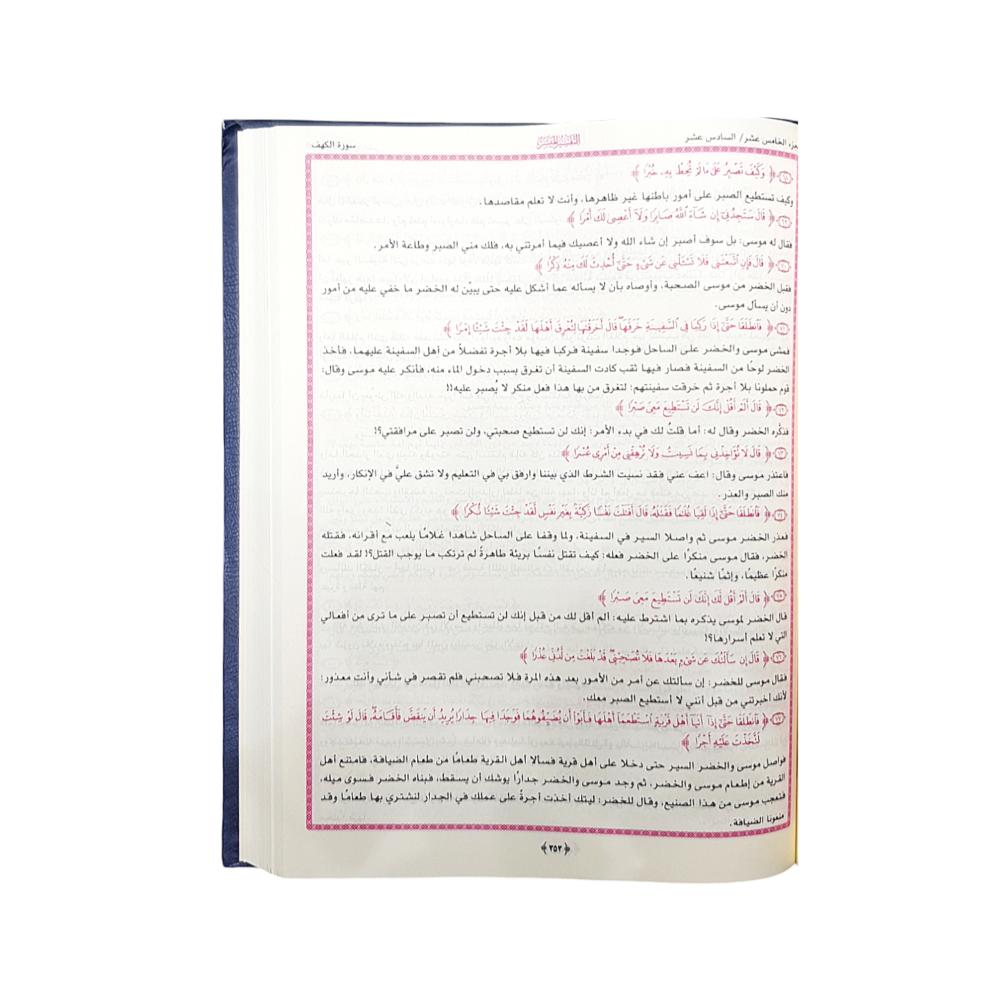 الجزء الخامس عشر/ السادس عشر
التفسير الميسر
سورة الكهف
﴿ وَكَيْفَ تَصْبِرُ عَلَىٰ مَا لَمْ تُحِطْ بِهِۦ خُبْرًا ﴾
وكيف تستطيع الصبر على أمور باطنها غير ظاهرها، وأنت لا تعلم مقاصدها.
﴿ قَالَ سَتَجِدُنِىٓ إِن شَآءَ ٱللَّهُ صَابِرًا وَلَآ أَعْصِى لَكَ أَمْرًا ﴾
فقال له موسى: بل سوف أصبر إن شاء الله ولا أعصيك فيما أمرتني به، فلك مني الصبر وطاعة الأمر.
﴿ قَالَ فَإِنِ ٱتَّبَعْتَنِى فَلَا تَسْـَٔلْنِى عَن شَىْءٍ حَتَّىٰٓ أُحْدِثَ لَكَ مِنْهُ ذِكْرًا ﴾
فقبل الخضر من موسى الصحبة، وأوصاه بأن لا يسأله عما أشكل عليه حتى يبيّن له الخضر ما خفي عليه من أمور
دون أن يسأل موسى.
﴿ فَٱنطَلَقَا حَتَّىٰٓ إِذَا رَكِبَا فِى ٱلسَّفِينَةِ خَرَقَهَا ۖ قَالَ أَخَرَقْتَهَا لِتُغْرِقَ أَهْلَهَا لَقَدْ جِئْتَ شَيْـًٔا إِمْرًا ﴾
فمشى موسى والخضر على الساحل فوجدا سفينة فركبا فيها بلا أجرة تفضلاً من أهل السفينة عليهما، فأخذ
الخضر لوحًا من السفينة فصار فيها ثقب كادت السفينة أن تغرق بسبب دخول الماء منه، فأنكر عليه موسى وقال:
قوم حملونا بلا أجرة ثم خرقت سفينتهم؛ لتغرق من بها هذا فعل منكر لا يُصبر عليه!!
﴿ قَالَ أَلَمْ أَقُلْ إِنَّكَ لَن تَسْتَطِيعَ مَعِىَ صَبْرًا ﴾
فذكّره الخضر وقال له: أما قلتُ لك في بدء الأمر: إنك لن تستطيع صحبتي، ولن تصبر على مرافقتي؟!
﴿ قَالَ لَا تُؤَاخِذْنِى بِمَا نَسِيتُ وَلَا تُرْهِقْنِى مِنْ أَمْرِى عُسْرًا ﴾
فاعتذر موسى وقال: اعف عني فقد نسيت الشرط الذي بيننا وارفق بي في التعليم ولا تشق عليَّ في الإنكار، وأريد
منك الصبر والعذر.
﴿ فَٱنطَلَقَا حَتَّىٰٓ إِذَا لَقِيَا غُلَـٰمًا فَقَتَلَهُۥ قَالَ أَقَتَلْتَ نَفْسًا زَكِيَّةًۢ بِغَيْرِ نَفْسٍ لَّقَدْ جِئْتَ شَيْـًٔا نُّكْرًا ﴾
فعذر الخضر موسى ثم واصلا السير في السفينة، ولما وقفا على الساحل شاهدا غلامًا يلعب مع أقرانه، فقتله
الخضر، فقال موسى منكرًا على الخضر فعله: كيف تقتل نفسًا بريئة طاهرةً لم ترتكب ما يوجب القتل؟! لقد فعلت
منكرًا عظيمًا، وإثمًا شنيعًا.
﴿ قَالَ أَلَمْ أَقُل لَّكَ إِنَّكَ لَن تَسْتَطِيعَ مَعِىَ صَبْرًا ﴾
قال الخضر لموسى يذكره بما اشترط عليه: ألم أقل لك من قبل إنك لن تستطيع أن تصبر على ما ترى من أفعالي
التي لا تعلم أسرارها؟!
﴿ قَالَ إِن سَأَلْتُكَ عَن شَىْءٍۭ بَعْدَهَا فَلَا تُصَـٰحِبْنِى ۖ قَدْ بَلَغْتَ مِن لَّدُنِّى عُذْرًا ﴾
فقال موسى للخضر: إن سألتك عن أمر من الأمور بعد هذه المرة فلا تصحبني فلم تقصر في شأني وأنت معذور؛
لأنك أخبرتني من قبل أنني لا أستطيع الصبر معك.
﴿ فَٱنطَلَقَا حَتَّىٰٓ إِذَآ أَتَيَآ أَهْلَ قَرْيَةٍ ٱسْتَطْعَمَآ أَهْلَهَا فَأَبَوْا۟ أَن يُضَيِّفُوهُمَا فَوَجَدَا فِيهَا جِدَارًا يُرِيدُ أَن يَنقَضَّ فَأَقَامَهُۥ ۖ قَالَ لَوْ شِئْتَ
لَتَّخَذْتَ عَلَيْهِ أَجْرًا ﴾
فواصل موسى والخضر السير حتى دخلا على أهل قرية فسألا أهل القرية طعامًا من طعام الضيافة، فامتنع أهل
القرية من إطعام موسى والخضر، ثم وجد موسى والخضر جدارًا يوشك أن يسقط، فبناه الخضر فسوى ميله،
فتعجب موسى من هذا الصنيع، وقال للخضر: ليتك أخذت أجرةً على عملك في الجدار لنشتري بها طعامًا وقد
منعونا الضيافة.
﴿٣٥٣﴾